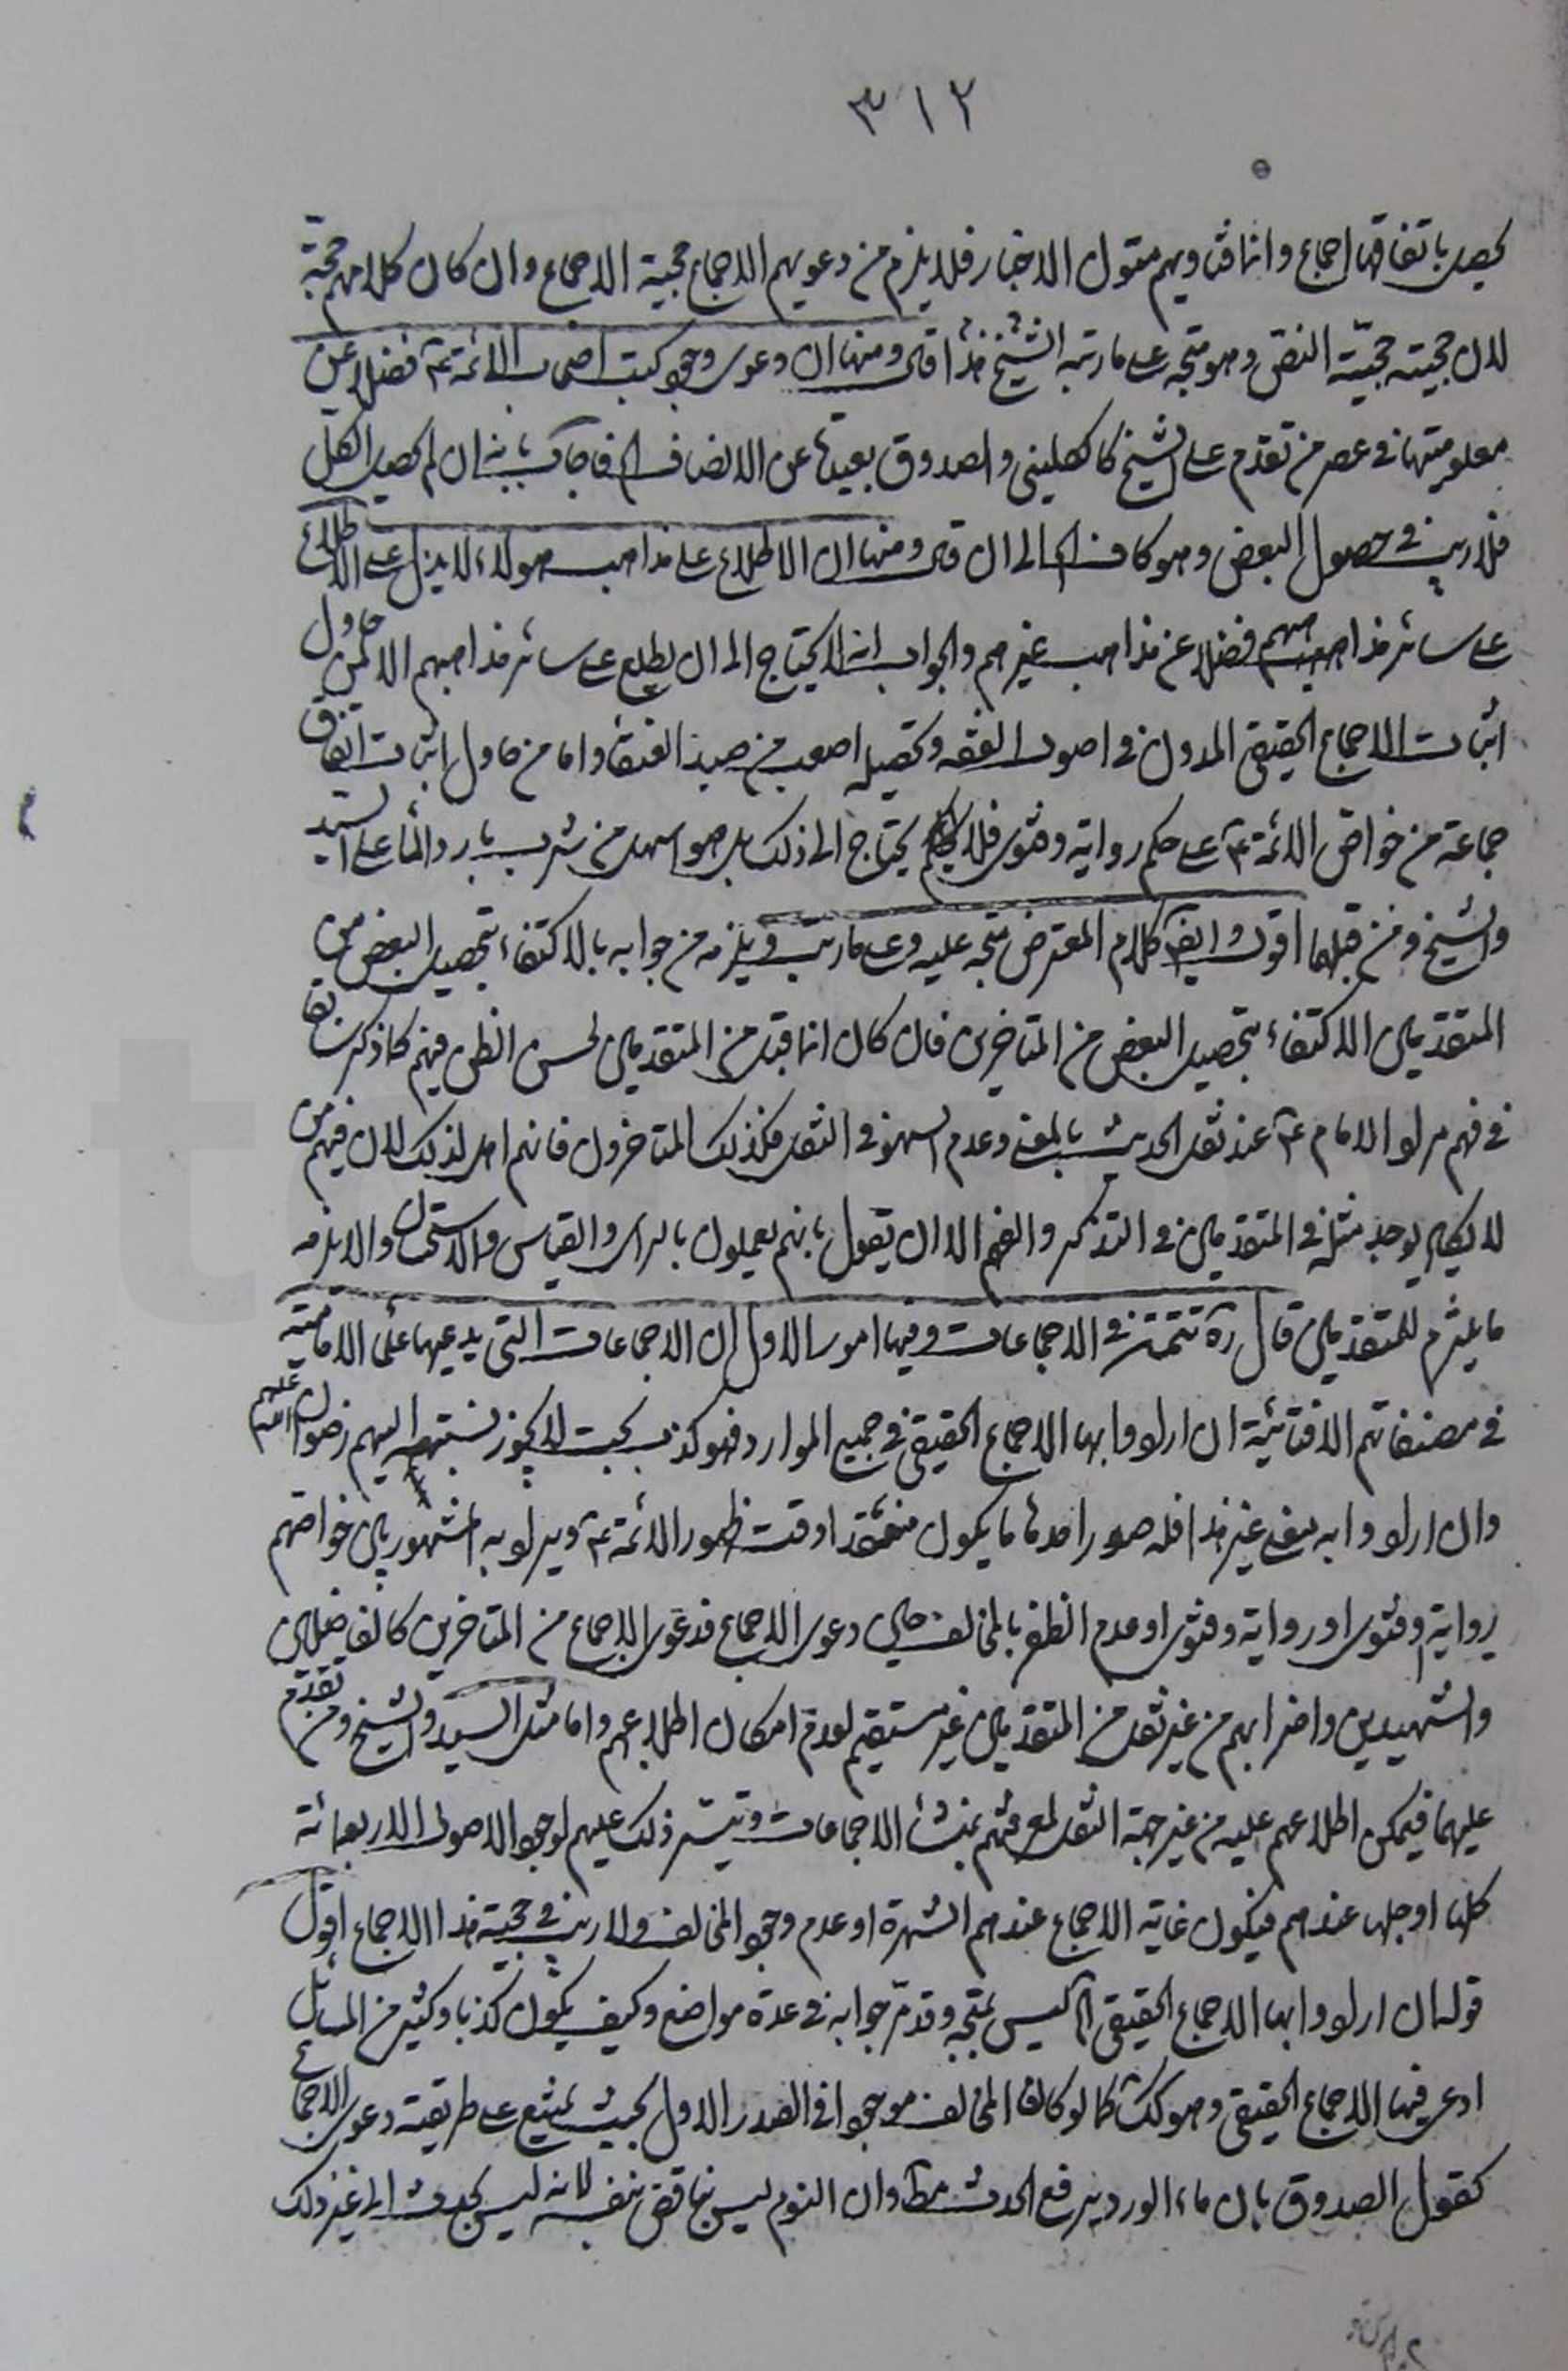 ٣١٢
يحصل باتفاقها اجماع وانما فتاويهم متون الاخبار فلا يلزم من دعويهم الاجماع حجية الاجماع وان كان كلامهم حجة
لان حجيته حجيّة النص وهو متجه على مارتبه الشيخ هذا قال ومنها ان دعوى وجود كتب اصحاب الائمة ع فضلا عن
معلوميتها في عصر من تقدم على الشيخ كالكليني والصدوق بعيدة عن الانصاف فاجاب بانه ان لم يحصل الكل
فلا ريب في حصول البعض وهو كاف الى ان قال ومنها ان الاطلاع على مذاهب هؤلاء لا يدل على الاطلاع
على سائر مذاهبهم فضلا عن مذاهب غيرهم والجواب انه لا يحتاج الى ان يطلع على سائر مذاهبهم الا من حاول
اثبات الاجماع الحقيقي المدون في اصول الفقه وتحصيله اصعب من صيد العنقاء واما من حاول اثبات اتفاق
جماعة من خواص الائمة ع على حكم رواية وفتوى فلا يحتاج الى ذلك بل هو اسهل من شرب بارد الماء على السيد
والشيخ ومن قبلهما اقول وايضا كلام المعترض متجه عليه وعلى مارتب ويلزمه من جوابه بالاكتفاء بتحصيل البعض من
المتقدمين الاكتفاء بتحصيل البعض من المتاخرين فان كان انما قبل من المتقدمين لحسن الظن فيهم كما ذكر سابقا
في فهم مراد الامام ع عند نقل الحديث بالمعنى وعدم السهو في النقل فكذلك المتاخرون فانهم اهل لذلك لان فيهم من
لا يكاد يوجد مثله في المتقدمين في التذكر والفهم الا ان يقول بانهم يعملون بالراي والقياس والاستحسان والا يلزمه
ما يلتزم للمتقدمين قال ره تتمة في الاجماعات وفيها امور الاول ان الاجماعات التي يدعيها علماء الامامية
في مصنفاتهم الافتائية ان ارادوا بها الاجماع الحقيقي في جميع الموارد فهو كذب بحت لا يجوز نسبته اليهم رضوان الله عليهم
وان ارادوا به معنى غير هذا فله صور احدها ما يكون منعقدا وقت ظهور الائمة ع ويراد به المشهور بين خواصهم
رواية وفتوى او رواية وفتوى او عدم الظفر بالمخالف حين دعوى الاجماع فدعوى الاجماع من المتاخرين كالفاضلين
والشهيدين واضرابهم من غير نقل من المتقدمين غير مستقيم لعدم امكان اطلاعهم واما مثل السيد والشيخ ومن تقدم
عليهما فيمكن اطلاعهم عليه من غير جهة النقل لمعرفتهم بمنشأ الاجماعات وتيسر ذلك عليهم لوجود الاصول الاربعمائة
كلها او جلها عندهم فيكون غاية الاجماع عندهم الشهرة او عدم وجود المخالف ولا ريب في حجية هذا الاجماع اقول
قوله ان ارادوا بها الاجماع الحقيقي الخ ليس بمتجه وقد مرّ جوابه في عدة مواضع وكيف يكون كذبا وكثير من المسائل
ادعى فيها الاجماع الحقيقي وهو كك كما لو كان المخالف موجودا في الصدر الاول بحيث يمتنع على طريقته دعوى الاجماع
كقول الصدوق بان ماء الورد يرفع الحدث مط وان النوم ليس بناقض بنفسه لانه ليس بحدث الى غير ذلك